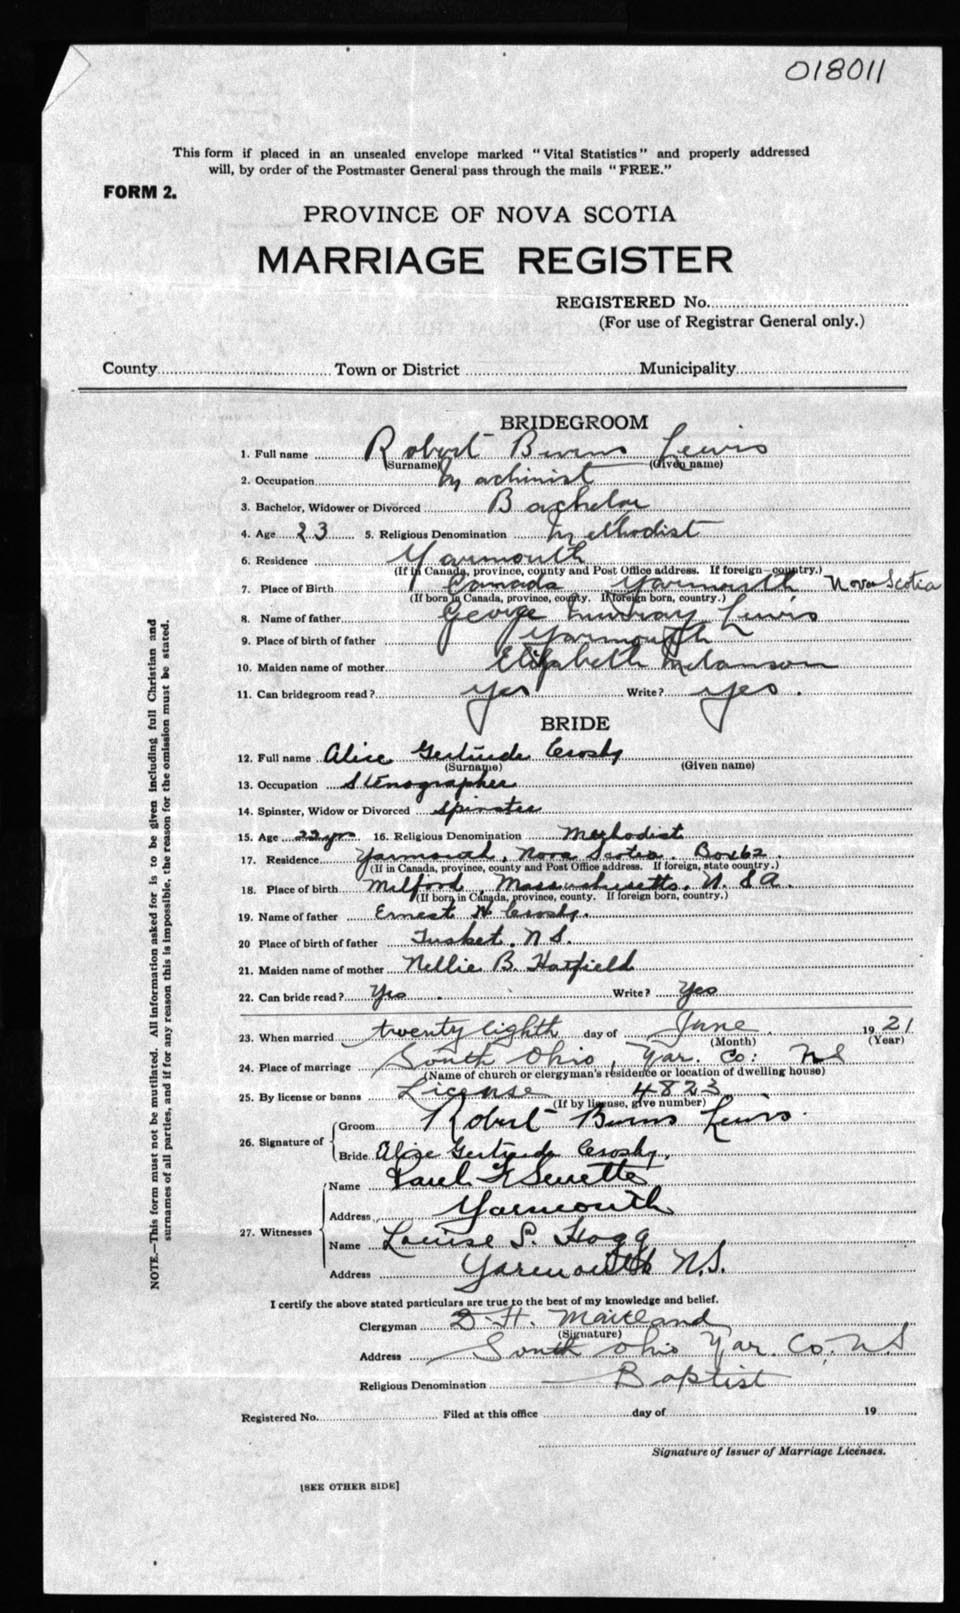 018011
This form if placed in an unsealed envelope marked "Vital Statistics" and properly addressed
will, by order of the Postmaster General pass through the mails "FREE."
FORM 2.
PROVINCE OF NOVA SCOTIA
MARRIAGE REGISTER
REGISTERED No.
(For use of Registrar General only.)
County Town or District Municipality
BRIDEGROOM
1. Full name Robert Burns Lewis
(Surname) (Given name)
2. Occupation Machinist
3. Bachelor, Widower or Divorced Bachelor
4. Age 23 5. Religious Denomination Methodist
6. Residence Yarmouth
(If in Canada, province, county and Post Office address. If foreign—country.)
7. Place of Birth Canada Yarmouth Nova Scotia
(If born in Canada, province, county. If foreign born, country.)
8. Name of father George Murray Lewis
9. Place of birth of father Yarmouth
10. Maiden name of mother Elizabeth Melanson
11. Can bridegroom read? yes Write? yes.
BRIDE
12. Full name Alice Gertrude Crosby
(Surname) (Given name)
13. Occupation Stenographer
14. Spinster, Widow or Divorced Spinster
15. Age 22 yrs 16. Religious Denomination Methodist
17. Residence Yarmouth, Nova Scotia. Box 62.
(If in Canada, province, county and Post Office address. If foreign, state country.)
18. Place of birth Milford, Massachusetts. U.S.A.
(If born in Canada, province, county. If foreign born, country.)
19. Name of father Ernest H Crosby.
20 Place of birth of father Tusket, N.S.
21. Maiden name of mother Nellie B. Hatfield
22. Can bride read? Yes Write? Yes
23. When married twenty eighth day of June 1921
(Month) (Year)
24. Place of marriage South Ohio, Yar. Co: NS
(Name of church or clergyman's residence or location of dwelling house)
25. By license or banns License 4823
(If by license, give number)
26. Signature of Groom Robert Burns Lewis.
Bride Alice Gertrude Crosby.
27. Witnesses Name Paul F Surette
Address Yarmouth
Name Louise S. Hogg
Address Yarmouth N.S.
I certify the above stated particulars are true to the best of my knowledge and belief.
Clergyman D. H. MacLeand
(Signature)
Address South Ohio Yar. Co. N S
Religious Denomination Baptist
Registered No. Filed at this office day of 19
Signature of Issuer of Marriage Licenses.
[SEE OTHER SIDE]
NOTE.—This form must not be mutilated. All information asked for is to be given including full Christian and
surnames of all parties, and if for any reason this is impossible, the reason for the omission must be stated.